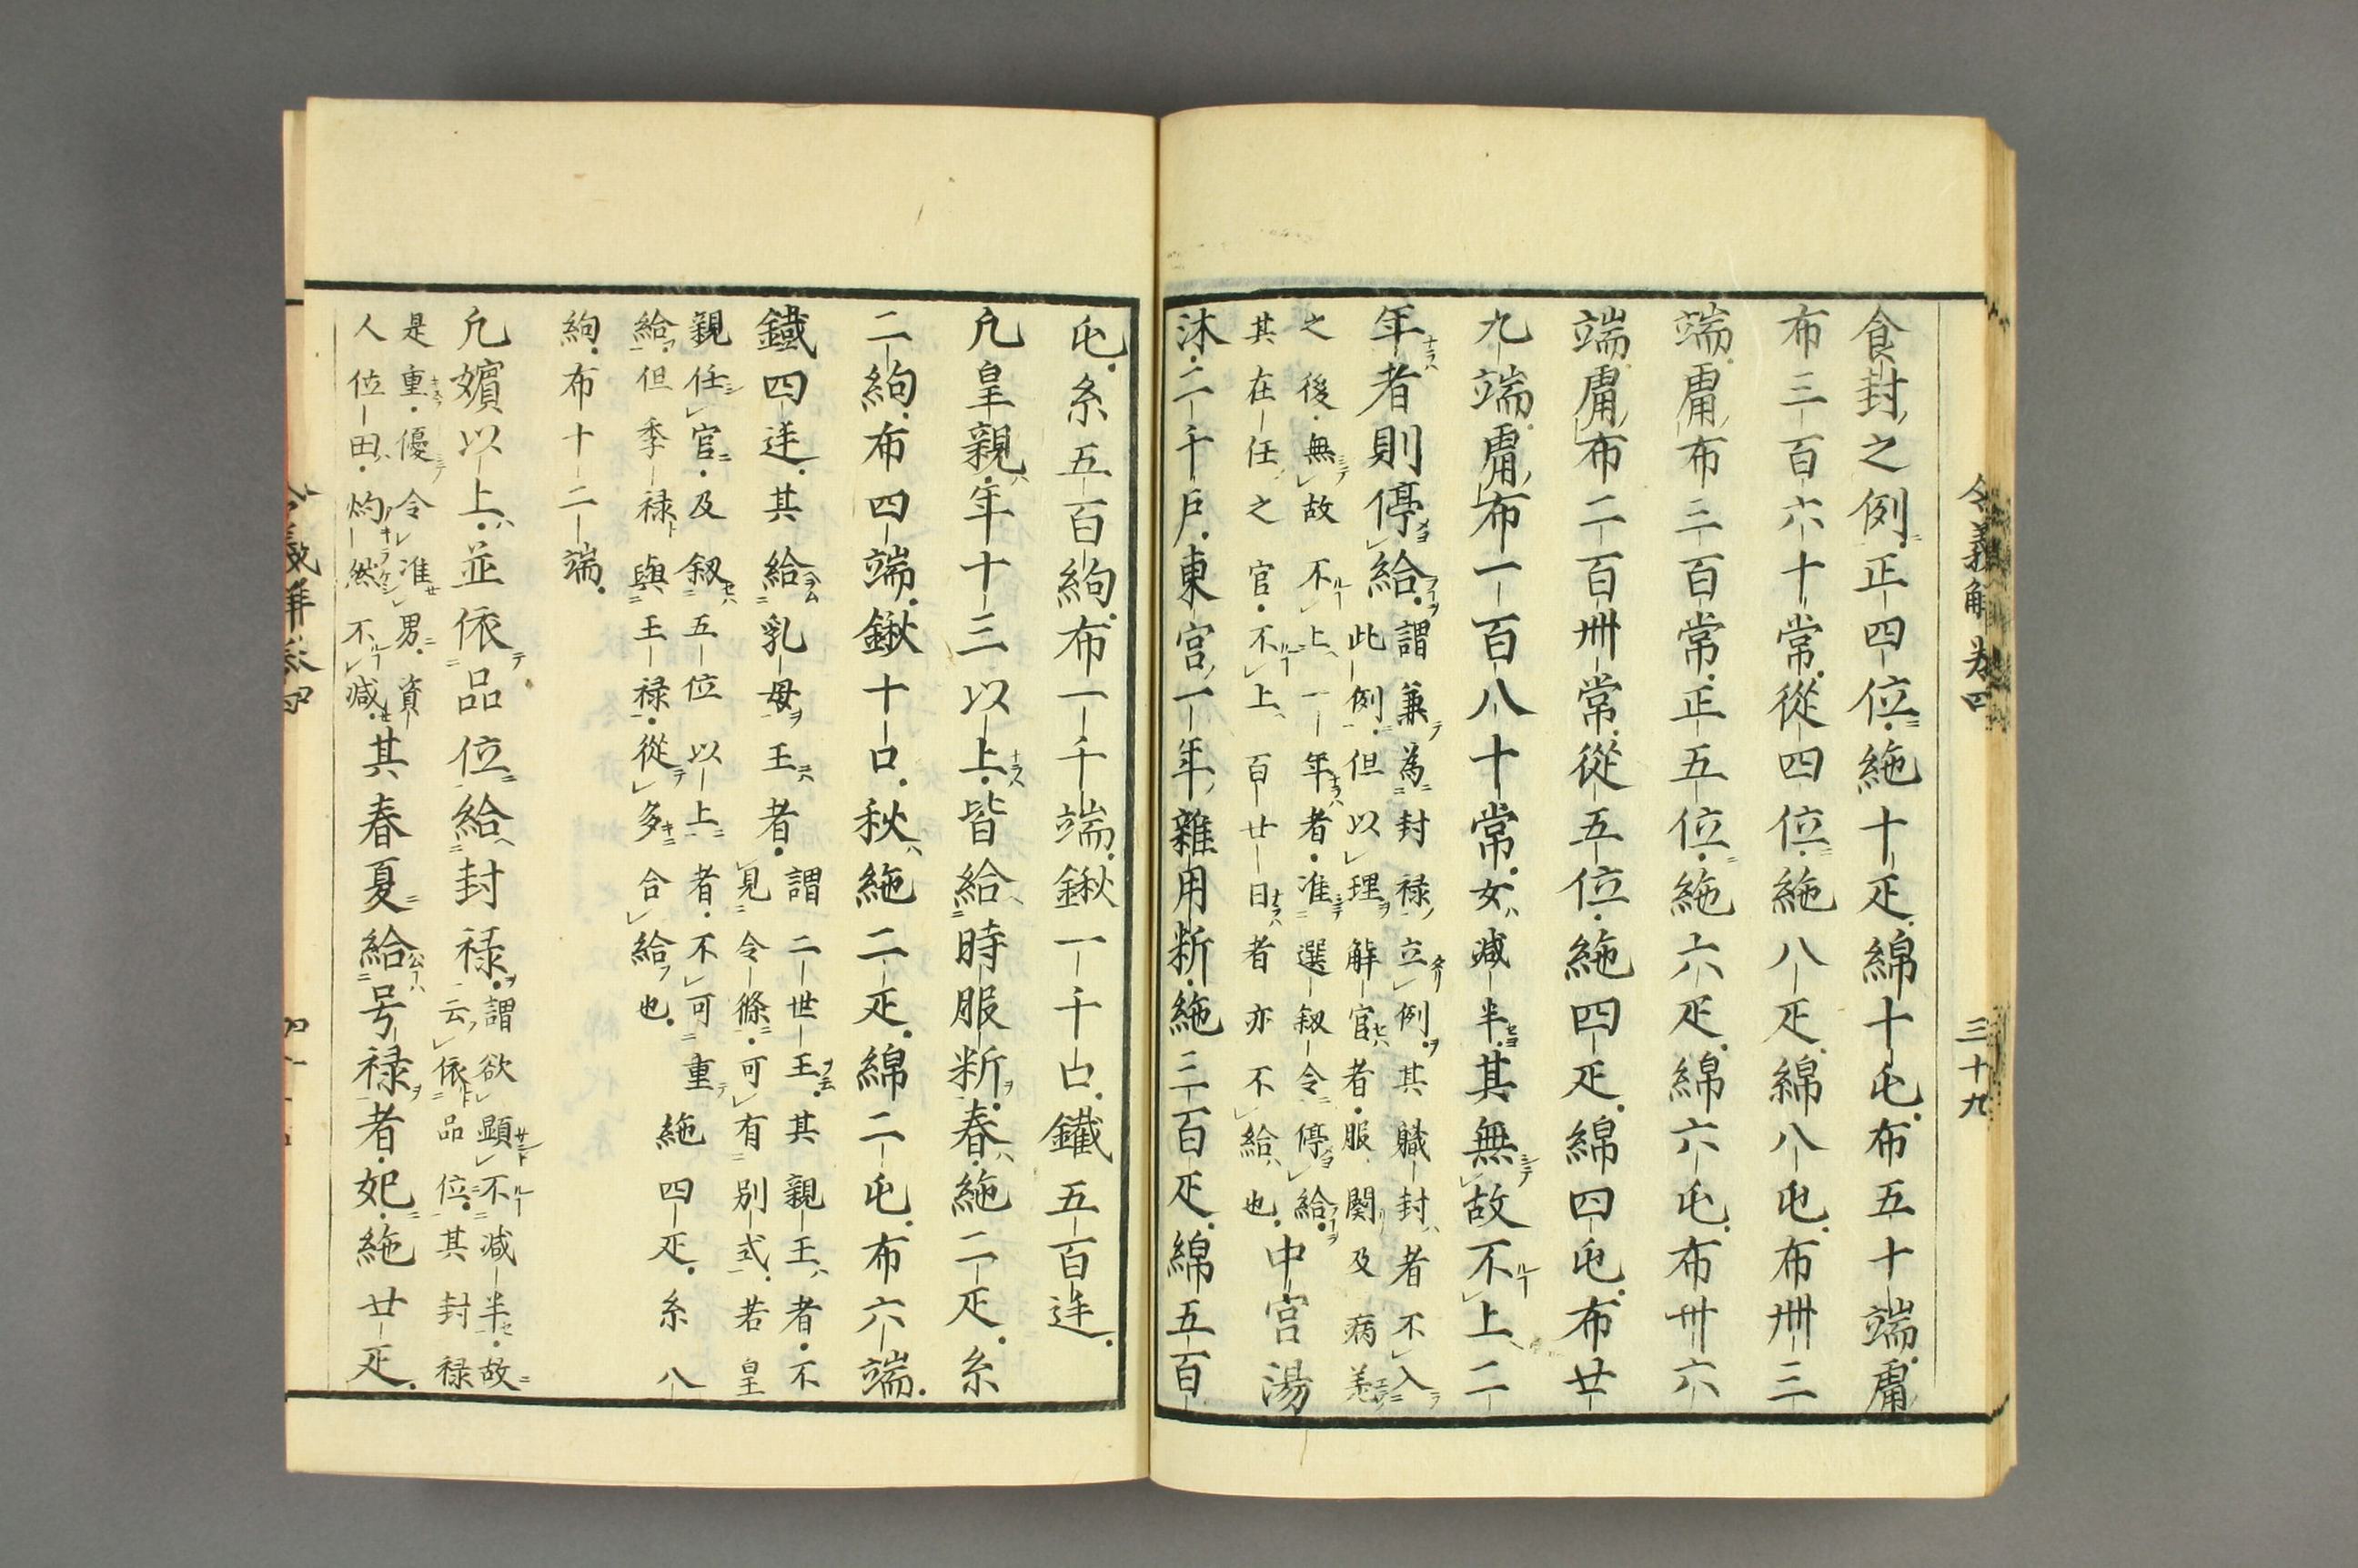 令義解卷四 三十九
食封之例正四位絁十疋綿十屯布五十端庸
布三百六十常從四位絁八疋綿八屯布卌三
端庸布三百常正五位絁六疋綿六屯布卅六
端庸布二百卌常從五位絁四疋綿四屯布廿
九端庸布一百八十常女減半其無故不上二
年者則停給
謂兼為封禄立例其職封者不入
此例但以理解官者服闋及病差
之後無故不上一年者准選叙令停給
其在任之官不上百廿日者亦不給也
中宮湯
沐二千戶東宮一年雜用料絁三百疋綿五百
屯糸五百絇布一千端鍬一千口鐵五百廷
凡皇親年十三以上皆給時服料春絁二疋糸
二絇布四端鍬十口秋絁二疋綿二屯布六端
鐵四廷其給乳母王者
謂二世王其親王者不
見令條可有別式若皇
親任官及叙五位以上者不可重
給但季禄與王禄從多合給也
絁四疋糸八
絇布十二端
凡嬪以上並依品位給封禄
謂欲顯不減半故
云依品位其封禄
是重優令准男資
人位田灼然不減
其春夏給号禄者妃絁廿疋